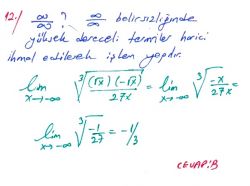 12.) ∞/∞ ? ∞/∞ belirsizliğinde
yüksek dereceli terimler harici
ihmal edilerek işlem yapılır.
lim x→-∞ ∛((√x)(-√x)/27x) = lim x→-∞ ∛(-x/27x) =
lim x→-∞ ∛(-1/27) = -1/3
CEVAP:B